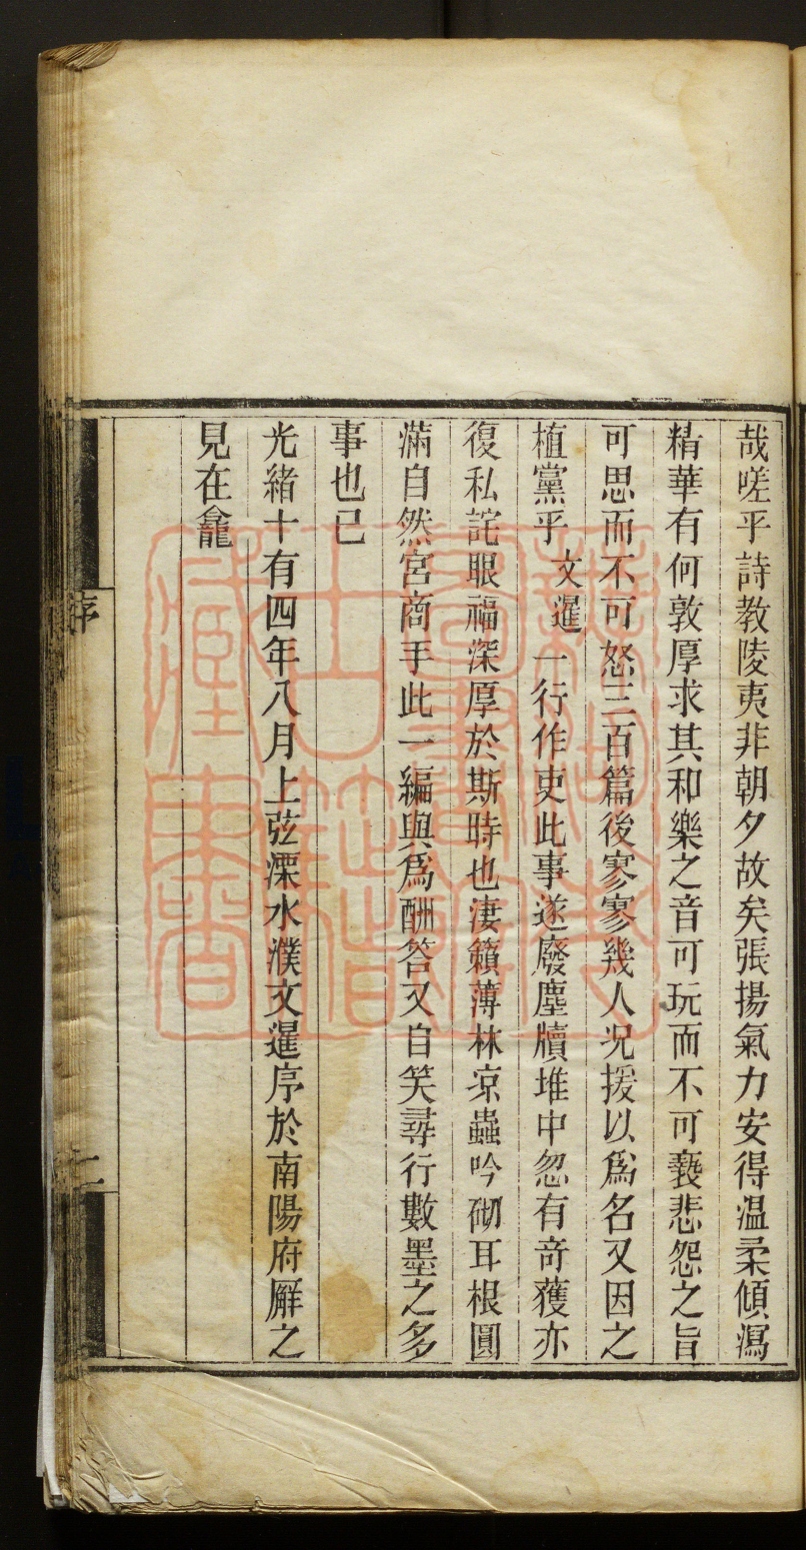 哉嗟乎詩教陵夷非朝夕故矣張揚氣力安得温柔傾瀉
精華有何敦厚求其和樂之音可玩而不可褻悲怨之旨
可思而不可怒三百篇後寥寥幾人況援以爲名又因之
植黨乎文暹一行作吏此事遂廢塵牘堆中忽有奇獲亦
復私詫眼福深厚於斯時也淒籟薄林凉蟲吟砌耳根圓
滿自然宮商手此一編與爲酬答又自笑尋行數墨之多
事也已
光緒十有四年八月上弦溧水濮文暹序於南陽府廨之
見在龕
序
二